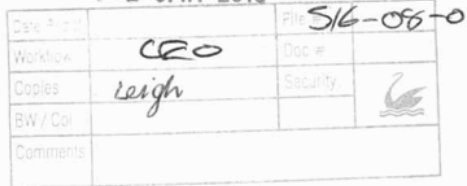 File # 516-08-0
Workflow CEO Doc #
Copies Leigh Security
BW / Col
Comments